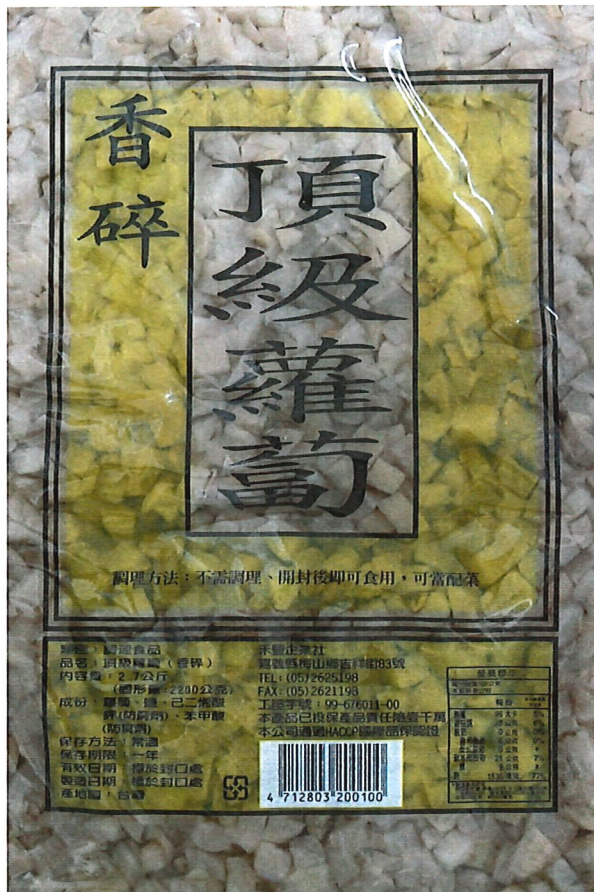 香碎
頂級蘿蔔
調理方法：不需調理、開封後即可食用，可當配菜
類別：調理食品
品名：頂級蘿蔔（香碎）
內容量：2.7公斤
（固形量：2200公克）
成份：蘿蔔、鹽、己二烯酸
鉀(防腐劑)、苯甲酸
(防腐劑)
保存方法：常溫
保存期限：一年
有效日期：標於封口處
製造日期：標於封口處
產地國：台灣
禾豐企業社
嘉義縣梅山鄉吉祥街83號
TEL:(05)2625198
FAX:(05)2621198
工證字號：99-676011-00
本產品已投保產品責任險壹千萬
本公司通過HACCP國際品保認證
4 712803 200100
營養標示